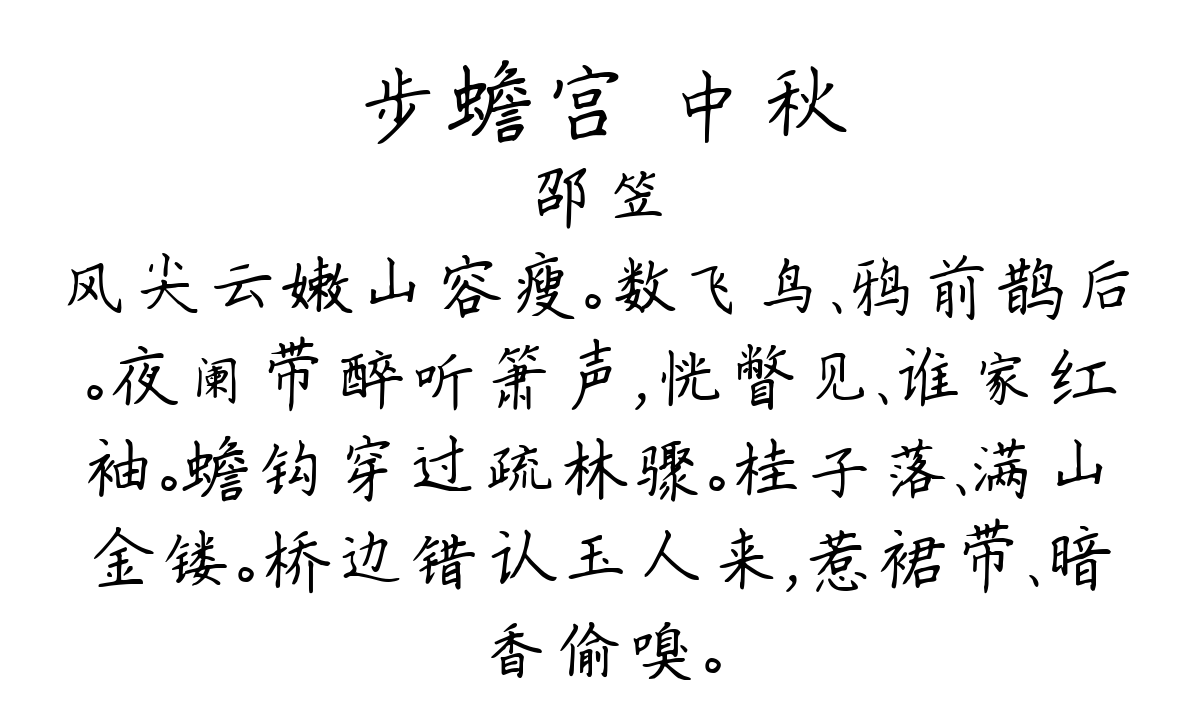 步蟾宫 中秋
邵笠
风尖云嫩山容瘦。数飞鸟、鸦前鹊后
。夜阑带醉听箫声,恍瞥见、谁家红
袖。蟾钩穿过疏林骤。桂子落、满山
金镂。桥边错认玉人来,惹裙带、暗
香偷嗅。